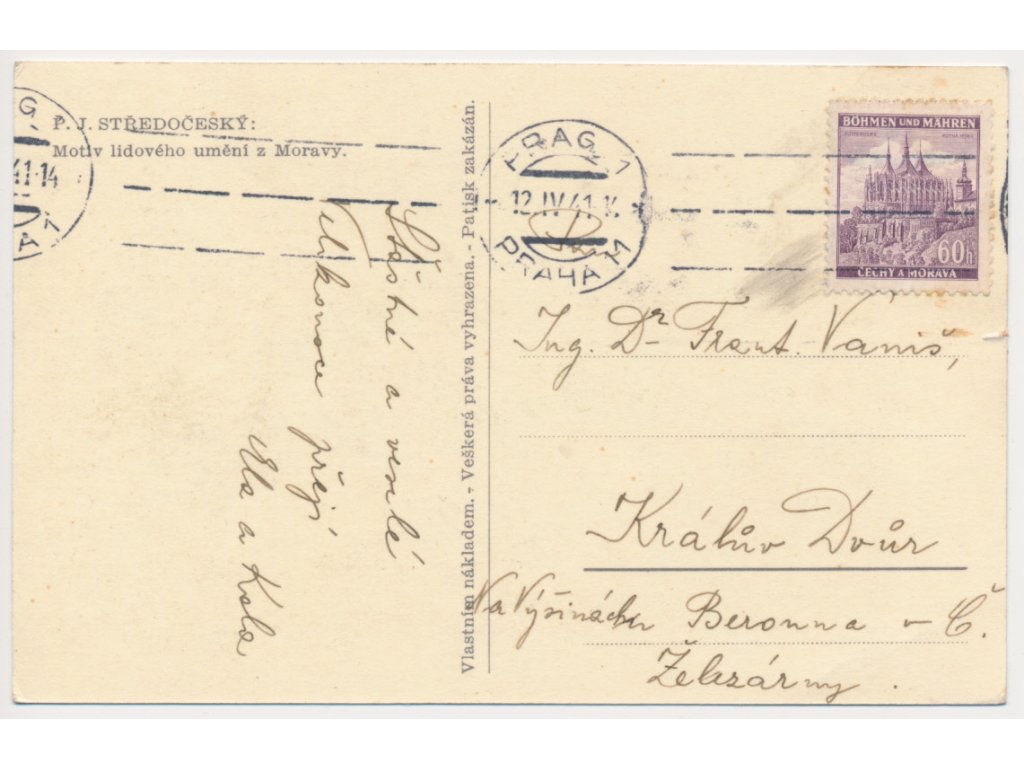 P. J. STŘEDOČESKÝ:
Motiv lidového umění z Moravy.
Šťastné a veselé
Velikonoce přejí
Ela a Kola
Vlastním nákladem. - Veškerá práva vyhrazena. - Patisk zakázán.
PRAG 1
12. IV. 41
PRAHA 1
BÖHMEN UND MÄHREN
60h
ČECHY A MORAVA
Ing. Dr Frant. Vaniš,
Králův Dvůr
Na Výšinách u Berouna - Č.
Železárny.